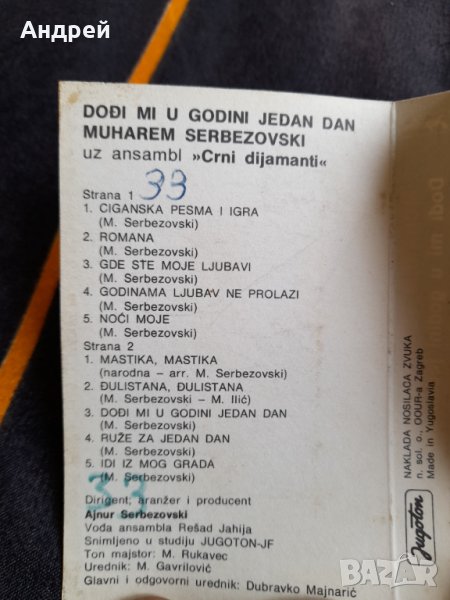 Андрей
DOĐI MI U GODINI JEDAN DAN
MUHAREM SERBEZOVSKI
uz ansambl »Crni dijamanti«
33
Strana 1
1. CIGANSKA PESMA I IGRA
(M. Serbezovski)
2. ROMANA
(M. Serbezovski)
3. GDE STE MOJE LJUBAVI
(M. Serbezovski)
4. GODINAMA LJUBAV NE PROLAZI
(M. Serbezovski)
5. NOĆI MOJE
(M. Serbezovski)
Strana 2
1. MASTIKA, MASTIKA
(narodna – arr. M. Serbezovski)
2. ĐULISTANA, ĐULISTANA
(M. Serbezovski – M. Ilić)
3. DOĐI MI U GODINI JEDAN DAN
(M. Serbezovski)
4. RUŽE ZA JEDAN DAN
(M. Serbezovski)
5. IDI IZ MOG GRADA
(M. Serbezovski)
33
Dirigent, aranžer i producent
Ajnur Serbezovski
Vođa ansambla Rešad Jahija
Snimljeno u studiju JUGOTON-JF
Ton majstor: M. Rukavec
Urednik: M. Gavrilović
Glavni i odgovorni urednik: Dubravko Majnarić
NAKLADA NOSILACA ZVUKA
n. sol. o., OOUR-a Zagreb
Made in Yugoslavia
Jugoton
Dođi mi u
bazar